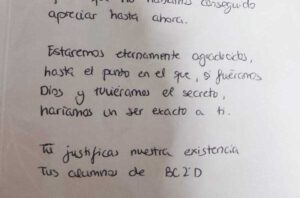 que no habíamos conseguido
apreciar hasta ahora.
Estaremos eternamente agradecidos,
hasta el punto en el que, si fuéramos
Dios y tuviéramos el secreto,
haríamos un ser exacto a ti.
Tu justificas nuestra existencia
Tus alumnos de BC2ºD